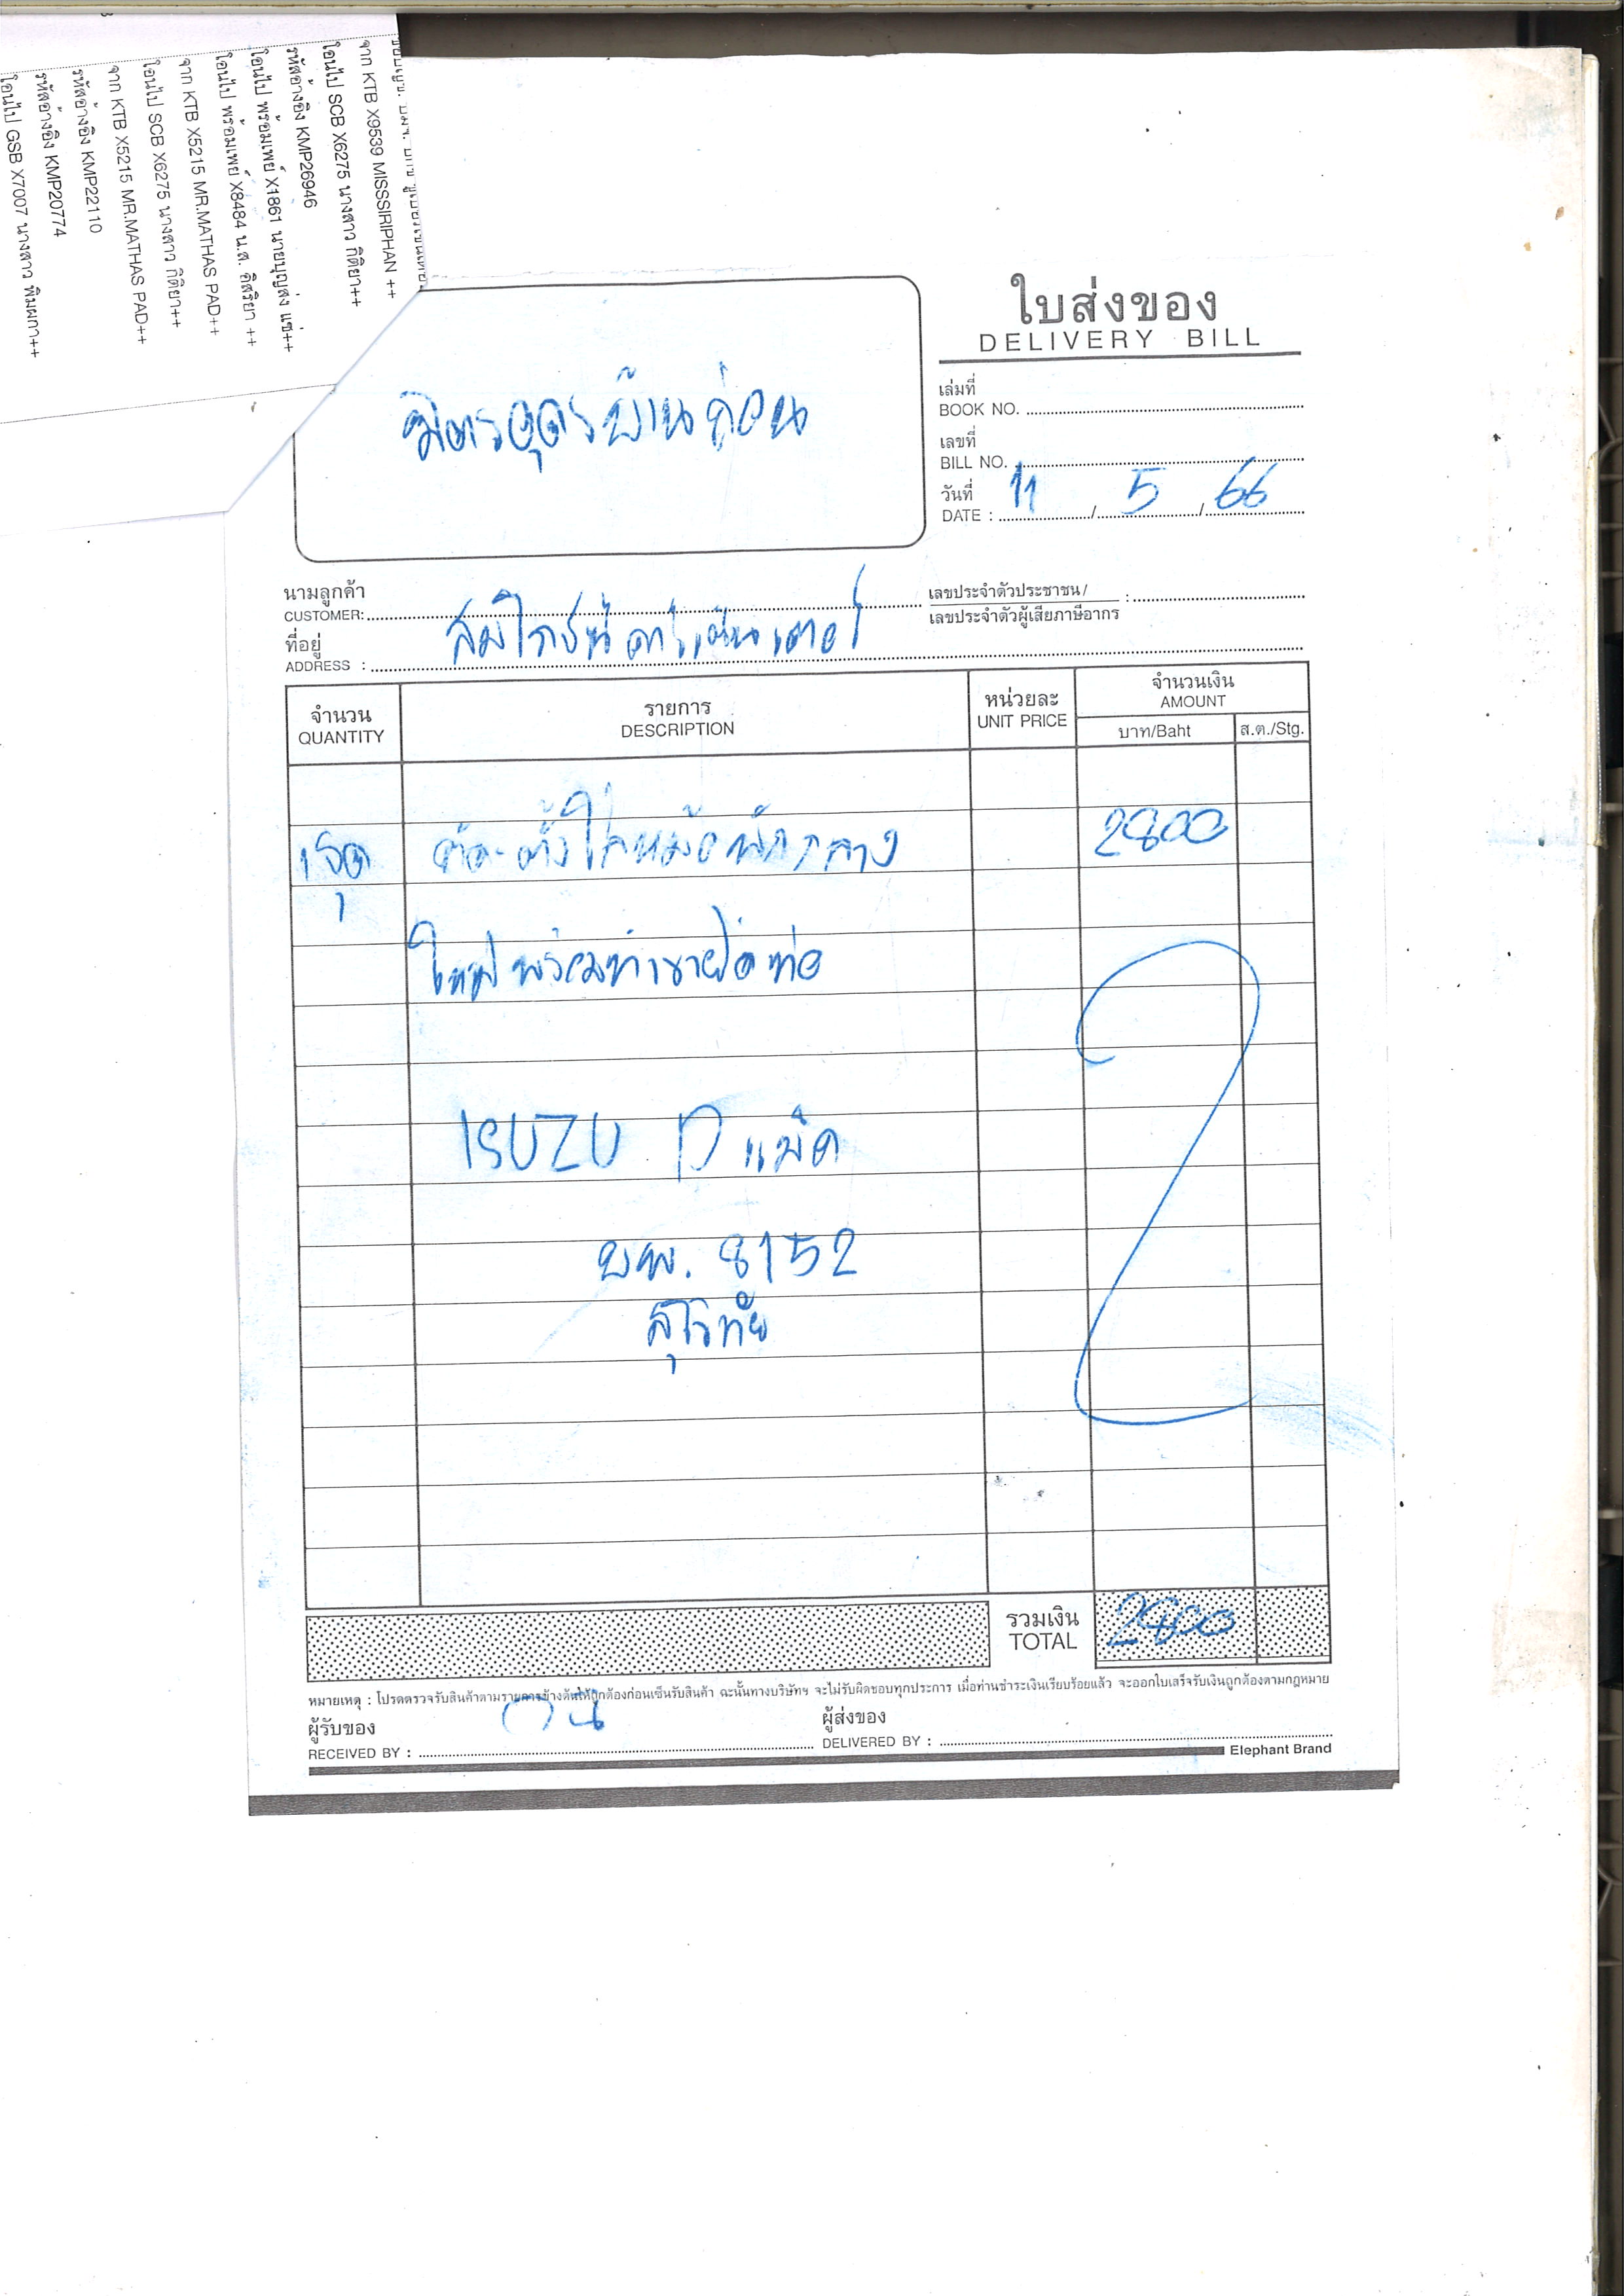 ชื่อบัญชี
จาก KTB X9539 MISSSIRIPHAN ++
โอนไป SCB X6275 นางสาว กิติยา++
รหัสอ้างอิง KMP26946
โอนไป พร้อมเพย์ X1861 นายบุญส่ง แซ่++
โอนไป พร้อมเพย์ X8484 น.ส. อิสริยา ++
จาก KTB X5215 MR.MATHAS PAD++
โอนไป SCB X6275 นางสาว กิติยา++
จาก KTB X5215 MR.MATHAS PAD++
รหัสอ้างอิง KMP22110
รหัสอ้างอิง KMP20774
โอนไป GSB X7007 นางสาว พิมผกา++
ใบส่งของ
DELIVERY BILL
มิตรอุดรบ้านก่อน
เล่มที่
BOOK NO.
เลขที่
BILL NO.
วันที่
DATE : 11 / 5 / 66
นามลูกค้า
CUSTOMER:
เลขประจำตัวประชาชน/ :
เลขประจำตัวผู้เสียภาษีอากร
ที่อยู่
ADDRESS :
จำนวน รายการ หน่วยละ จำนวนเงิน
QUANTITY DESCRIPTION UNIT PRICE AMOUNT
บาท/Baht ส.ต./Stg.
1 ชุด หม้อพักกลาง 2800
ใหม่พร้อมทำขายึดท่อ
ISUZU D แม็ค
บพ. 8152
สุโขทัย
รวมเงิน
TOTAL 2800
หมายเหตุ : โปรดตรวจรับสินค้าตามรายการข้างต้นให้ถูกต้องก่อนเซ็นรับสินค้า ฉะนั้นทางบริษัทฯ จะไม่รับผิดชอบทุกประการ เมื่อท่านชำระเงินเรียบร้อยแล้ว จะออกใบเสร็จรับเงินถูกต้องตามกฎหมาย
ผู้รับของ ผู้ส่งของ
RECEIVED BY : DELIVERED BY :
Elephant Brand